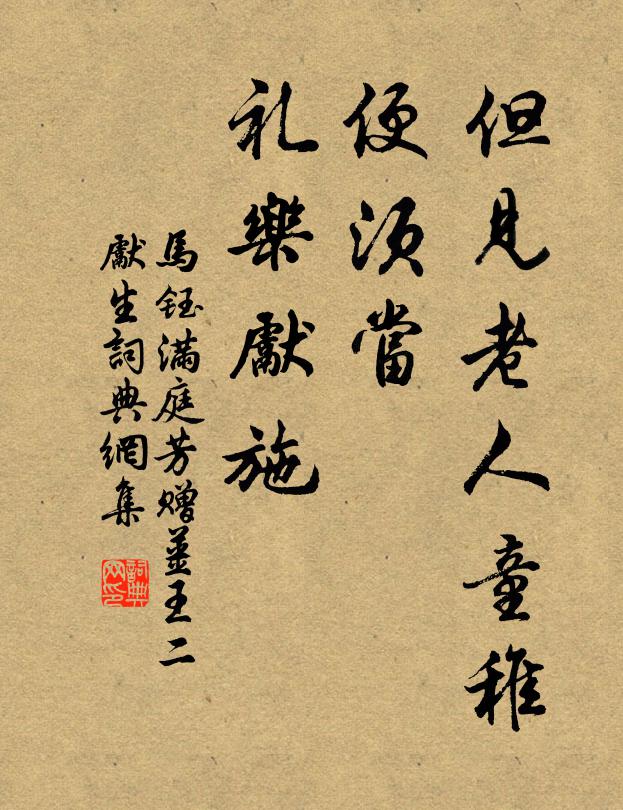 但見老人童稚
便須當
礼樂獻施
馬鈺滿庭芳贈姜王二
獻生詞典網集
詞典
网印